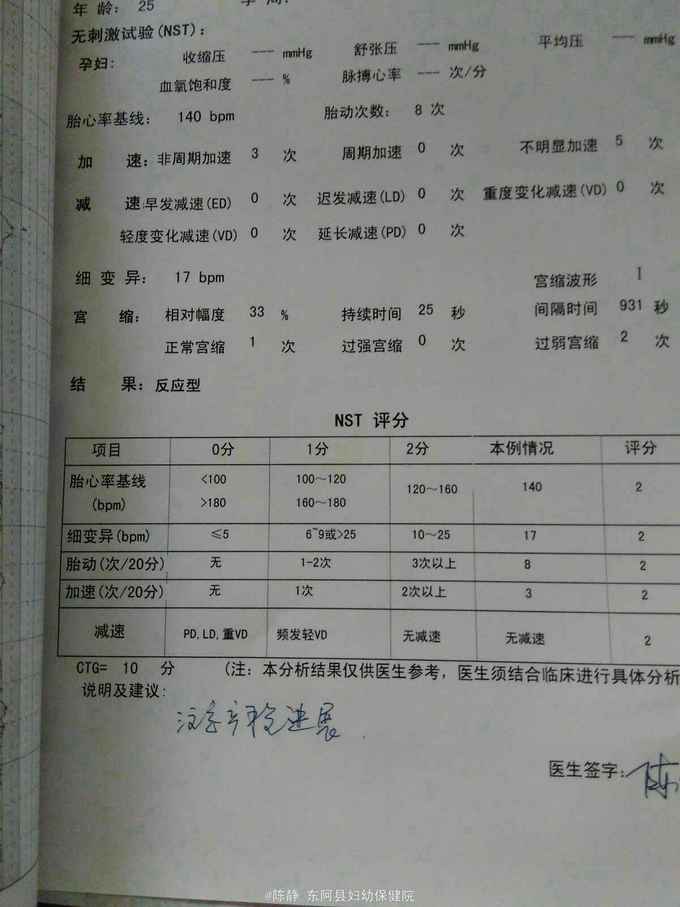 年 龄： 25
无刺激试验(NST)：
孕妇： 收缩压 --- mmHg 舒张压 --- mmHg 平均压 --- mmHg
血氧饱和度 --- % 脉搏心率 --- 次/分
胎心率基线： 140 bpm 胎动次数： 8 次
加 速：非周期加速 3 次 周期加速 0 次 不明显加速 5 次
减 速：早发减速(ED) 0 次 迟发减速(LD) 0 次 重度变化减速(VD) 0 次
轻度变化减速(VD) 0 次 延长减速(PD) 0 次
细 变 异： 17 bpm 宫缩波形 I
宫 缩：相对幅度 33 % 持续时间 25 秒 间隔时间 931 秒
正常宫缩 1 次 过强宫缩 0 次 过弱宫缩 2 次
结 果：反应型
NST 评分
项目 0分 1分 2分 本例情况 评分
胎心率基线(bpm) <100 >180 100～120 160～180 120～160 140 2
细变异(bpm) ≤5 6~9或>25 10～25 17 2
胎动(次/20分) 无 1-2次 3次以上 8 2
加速(次/20分) 无 1次 2次以上 3 2
减速 PD,LD,重VD 频发轻VD 无减速 无减速 2
CTG= 10 分 (注：本分析结果仅供医生参考，医生须结合临床进行具体分析
说明及建议：
注意产程进展
医生签字：陈
@陈静 东阿县妇幼保健院